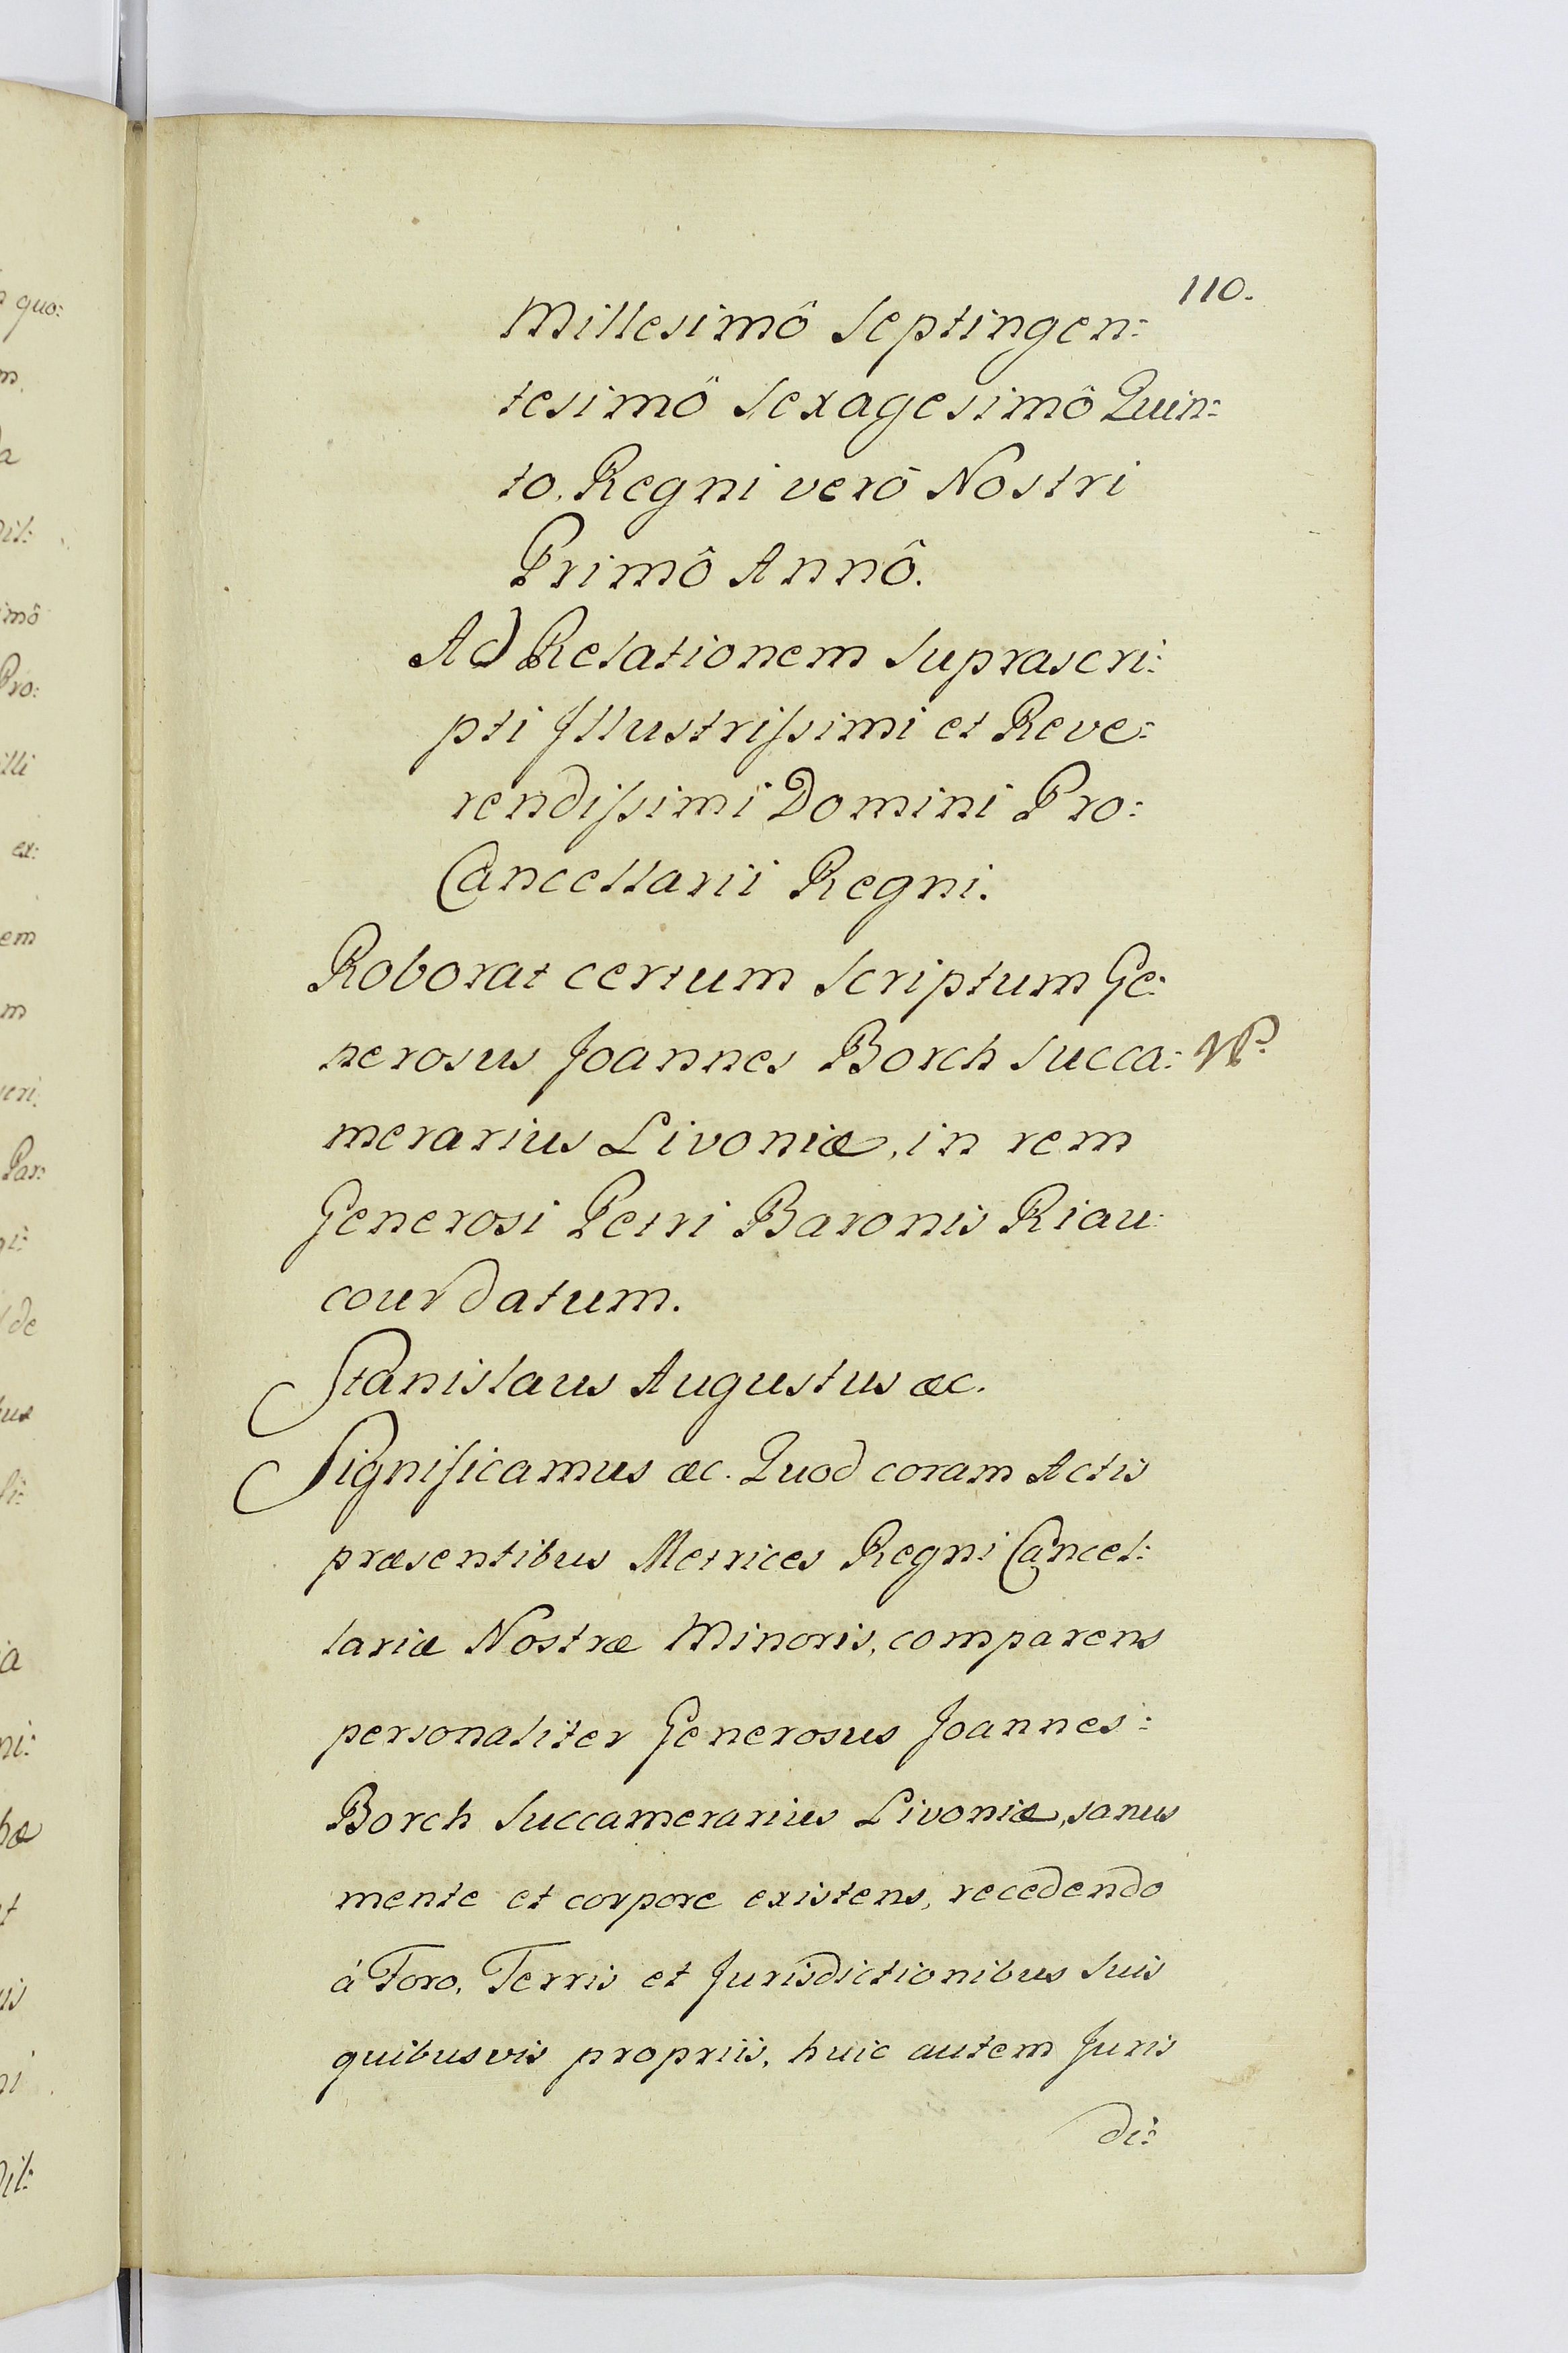 110.
Millesimô Septingen:
tesimô Sexagesimô Quin:
to, Regni verô Nostri
Primô Annô.
Ad Relationem Suprascri:
pti Illustrissimi et Reve:
rendissimi Domini Pro:
Cancellarii Regni.
Roborat certum Scriptum Ge:
nerosus Joannes Borch Succa:
merarius Livoniæ, in rem
Generosi Petri Baronis Riau:
cour datum.
Stanislaus Augustus æc.
Significamus æc. Quod coram Actis
præsentibus Metrices Regni Cancel:
lariæ Nostræ Minoris, comparens
personaliter Generosus Joannes:
Borch Succamerarius Livoniæ, sanus
mente et corpore existens, recedendo
à Foro, Terris et Jurisdictionibus Suis
quibusvis propriis, huic autem Juris
di: